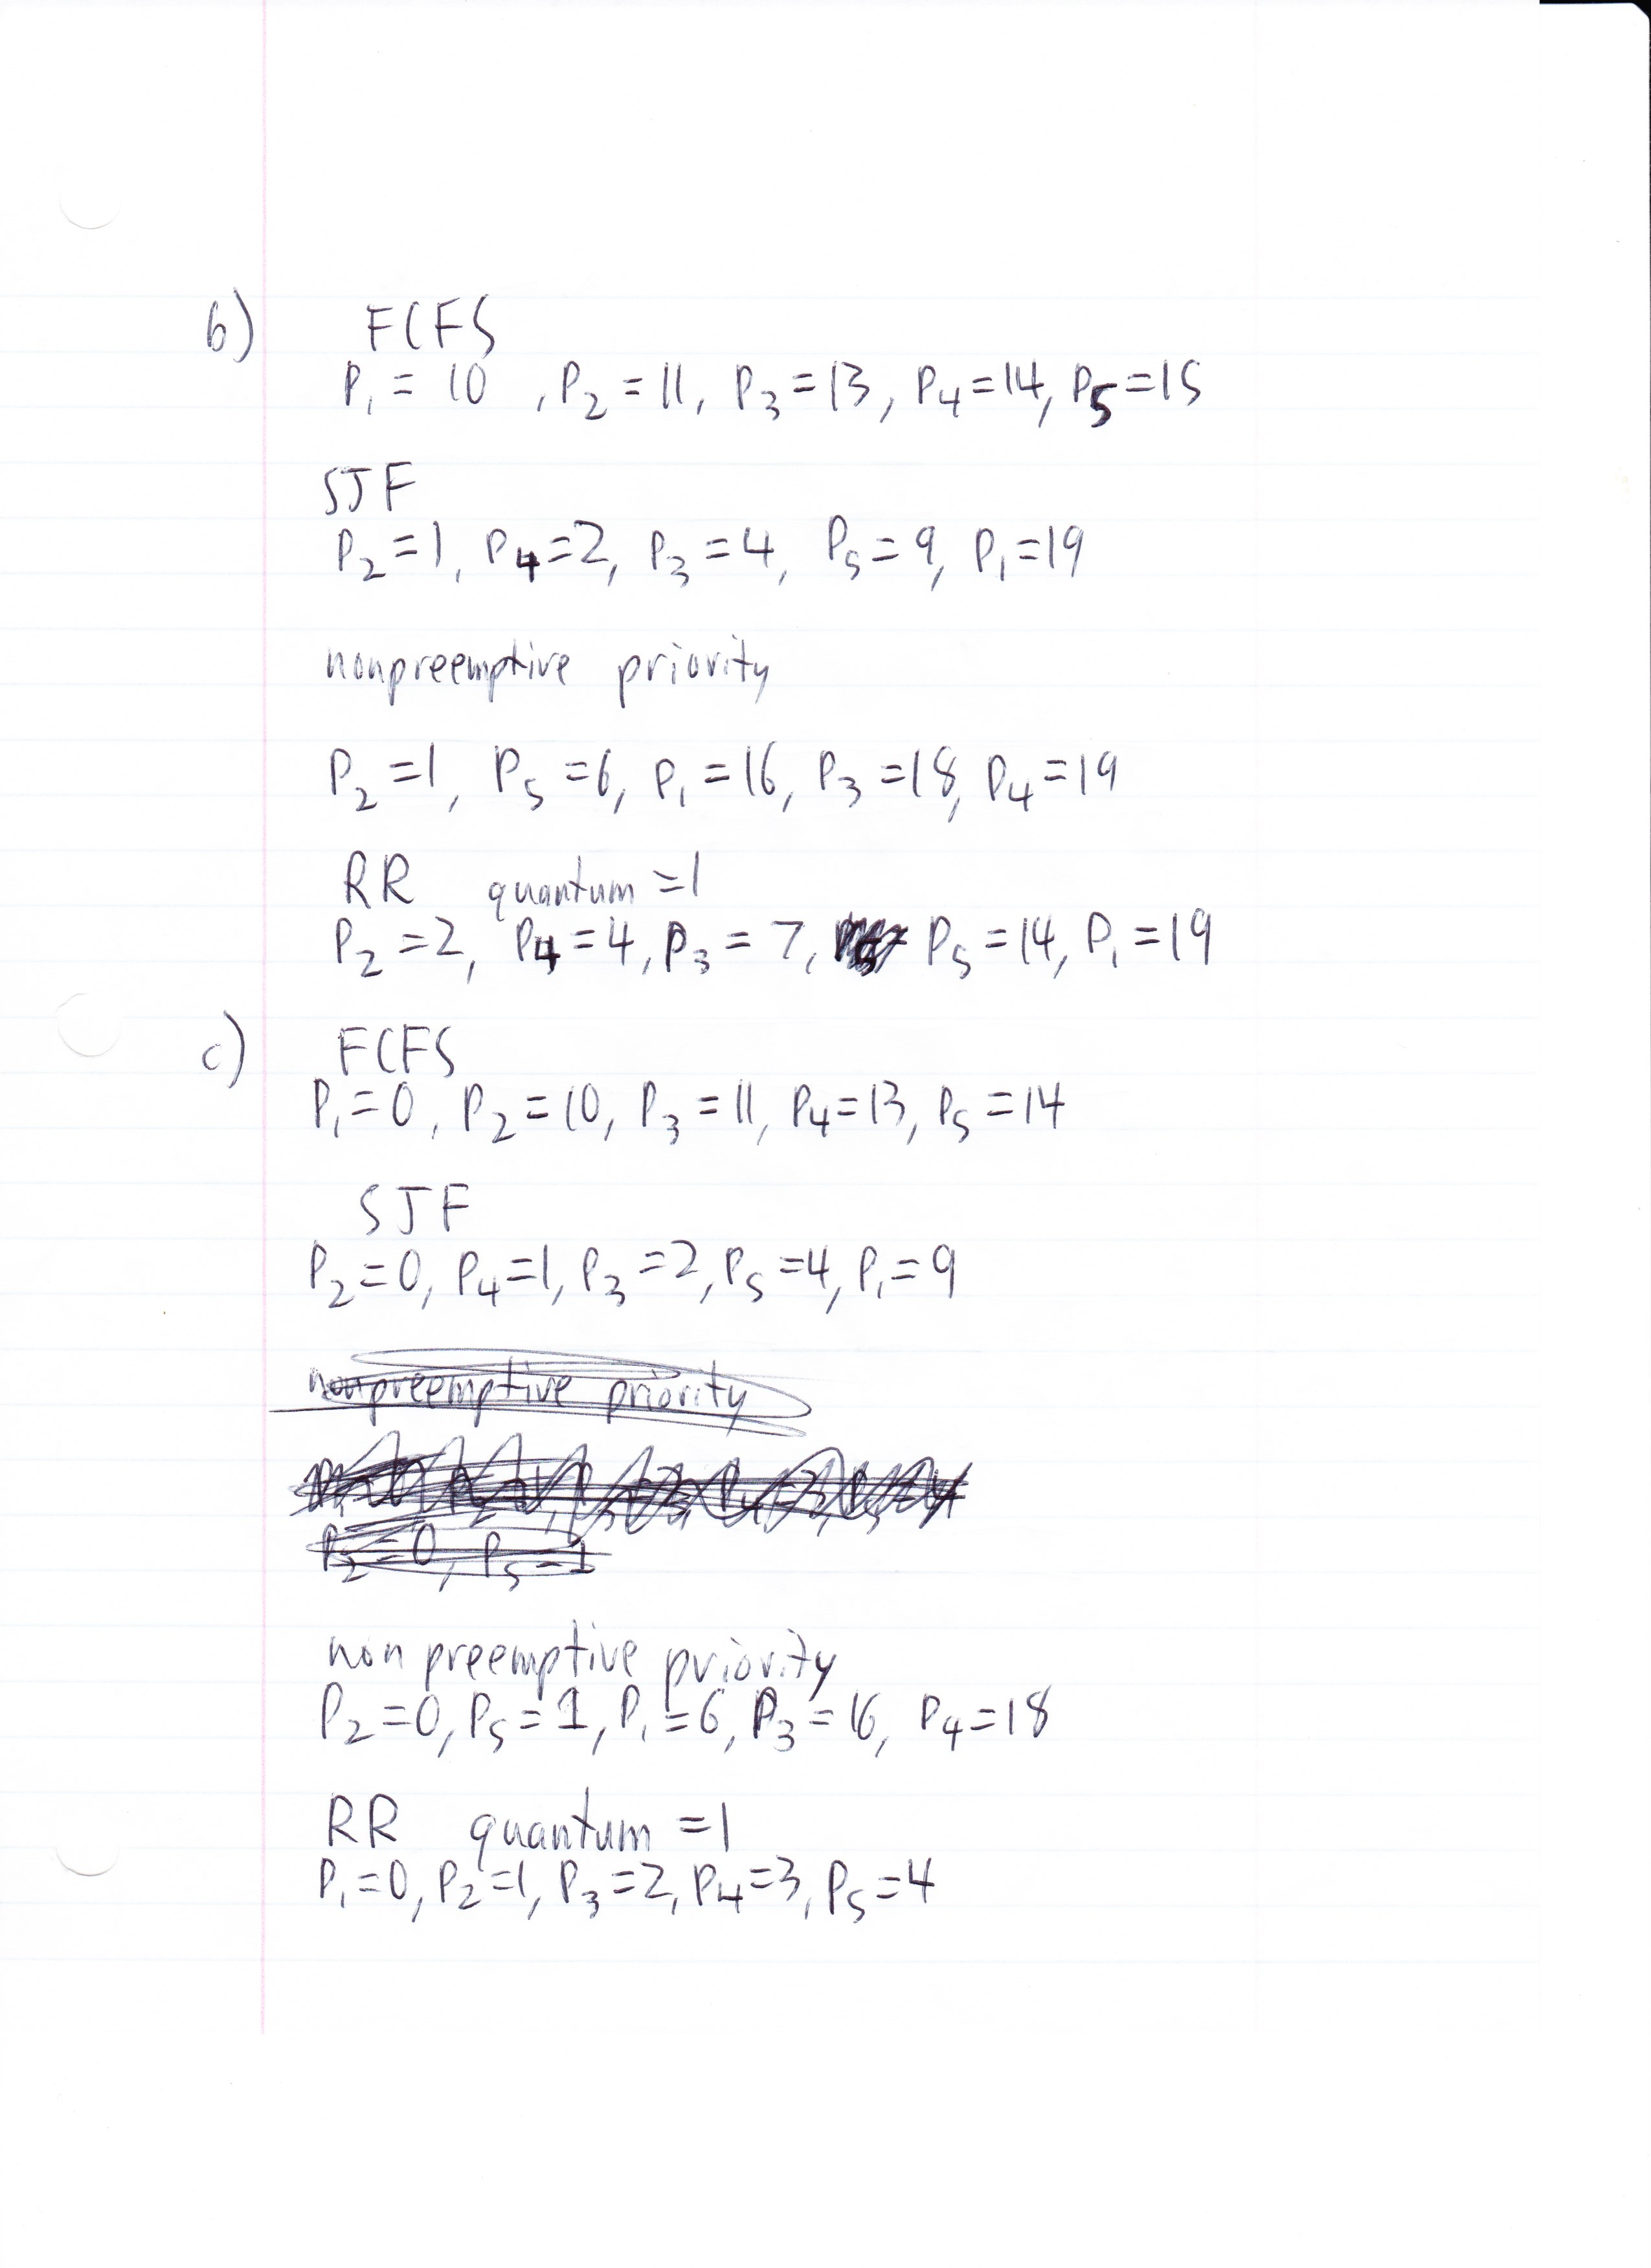 b) FCFS
P₁ = 10 , P₂ = 11, P₃ = 13, P₄ = 14, P₅ = 15
SJF
P₂ = 1, P₄ = 2, P₃ = 4, P₅ = 9, P₁ = 19
nonpreemptive priority
P₂ = 1, P₅ = 6, P₁ = 16, P₃ = 18, P₄ = 19
RR quantum = 1
P₂ = 2, P₄ = 4, P₃ = 7, P₅ = 14, P₁ = 19
c) FCFS
P₁ = 0, P₂ = 10, P₃ = 11, P₄ = 13, P₅ = 14
SJF
P₂ = 0, P₄ = 1, P₃ = 2, P₅ = 4, P₁ = 9
nonpreemptive priority
P₂ = 0, P₅ = 1
non preemptive priority
P₂ = 0, P₅ = 1, P₁ = 6, P₃ = 16, P₄ = 18
RR quantum = 1
P₁ = 0, P₂ = 1, P₃ = 2, P₄ = 3, P₅ = 4